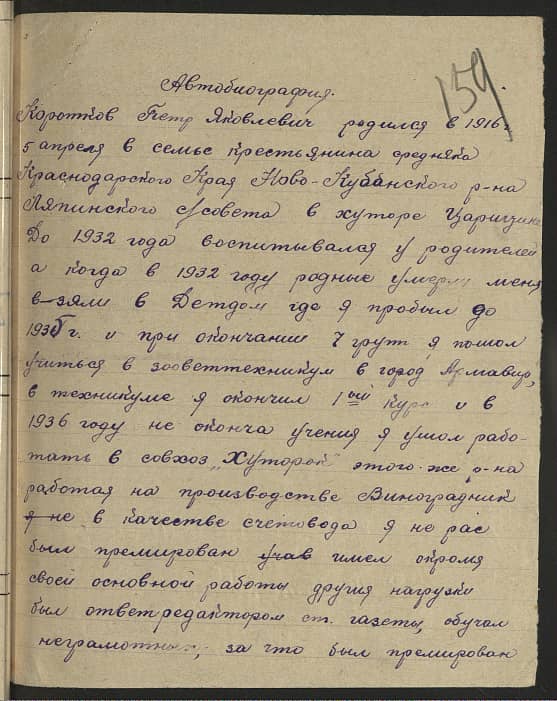 159.
Автобиография.
Коротков Петр Яковлевич родился в 1916 г.
5 апреля в семье крестьянина средняка
Краснодарского Края Ново-Кубанского р-на
Ляпинского с/совета в хуторе Царицине
До 1932 года воспитывался у родителей
а когда в 1932 году родные умерли меня
взяли в Детдом где я пробыл до
1935 г. и при окончании 7 групп я пошол
учиться в зооветтехникум в город Армавир,
в техникуме я окончил 1ый курс и в
1936 году не оконча учения я ушол рабо-
тать в совхоз „Хуторок" этого-же р-на
работая на производстве Виноградник
я не в качестве счетовода я не рас
был премирован учав имел окромя
своей основной работы другия нагрузки
был ответредактором ст. газеты, обучал
неграмотных, за что был премирован